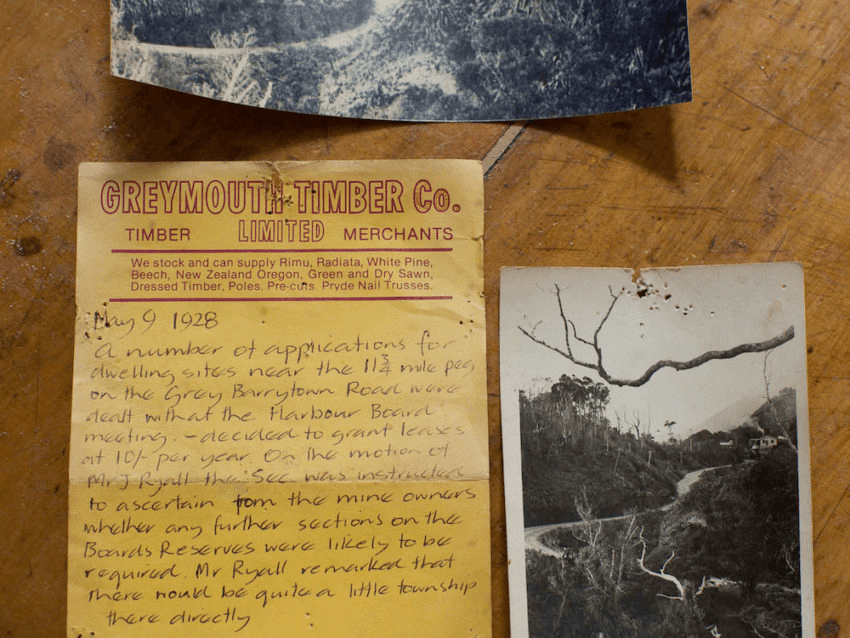 GREYMOUTH TIMBER Co.
TIMBER LIMITED MERCHANTS
We stock and can supply Rimu, Radiata, White Pine,
Beech, New Zealand Oregon, Green and Dry Sawn,
Dressed Timber, Poles, Pre-cuts, Pryde Nail Trusses.
May 9 1928
A number of applications for
dwelling sites near the 11 3/4 mile peg
on the Grey Barrytown Road were
dealt with at the Harbour Board
meeting. - decided to grant leases
at 10/- per year. On the motion of
Mr J Ryall the Sec was instructed
to ascertain from the mine owners
whether any further sections on the
Boards Reserves were likely to be
required. Mr Ryall remarked that
there would be quite a little township
there directly